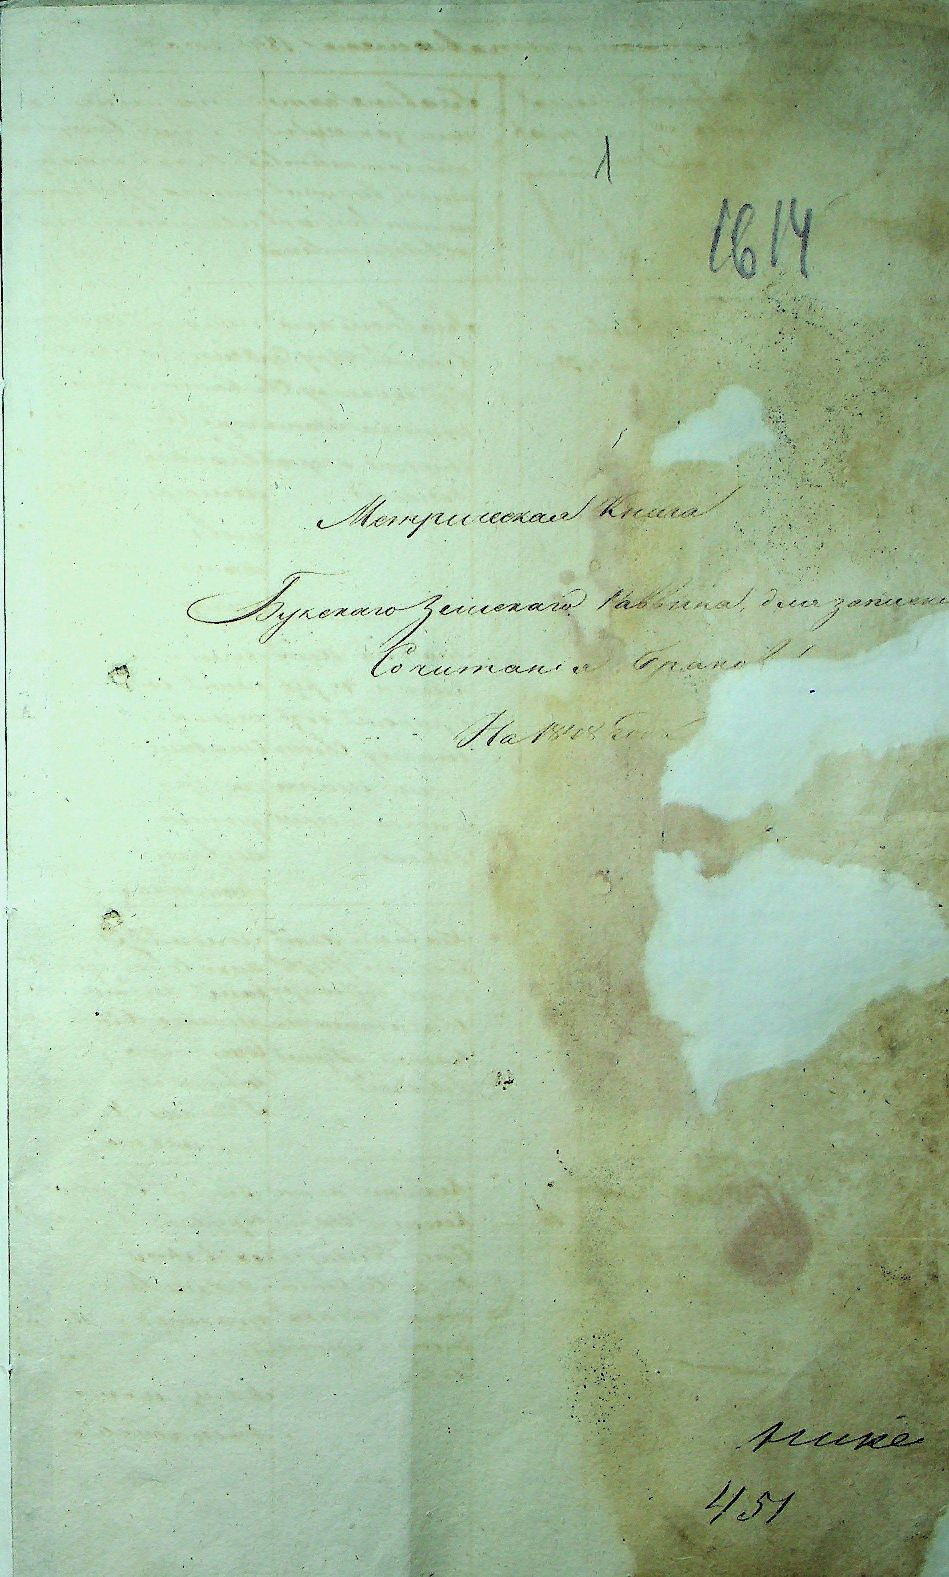 1
1614
Метрическая Книга
Букскаго Земскаго Раввина, для записки
Сочитанія браков
На 18 8 год
451